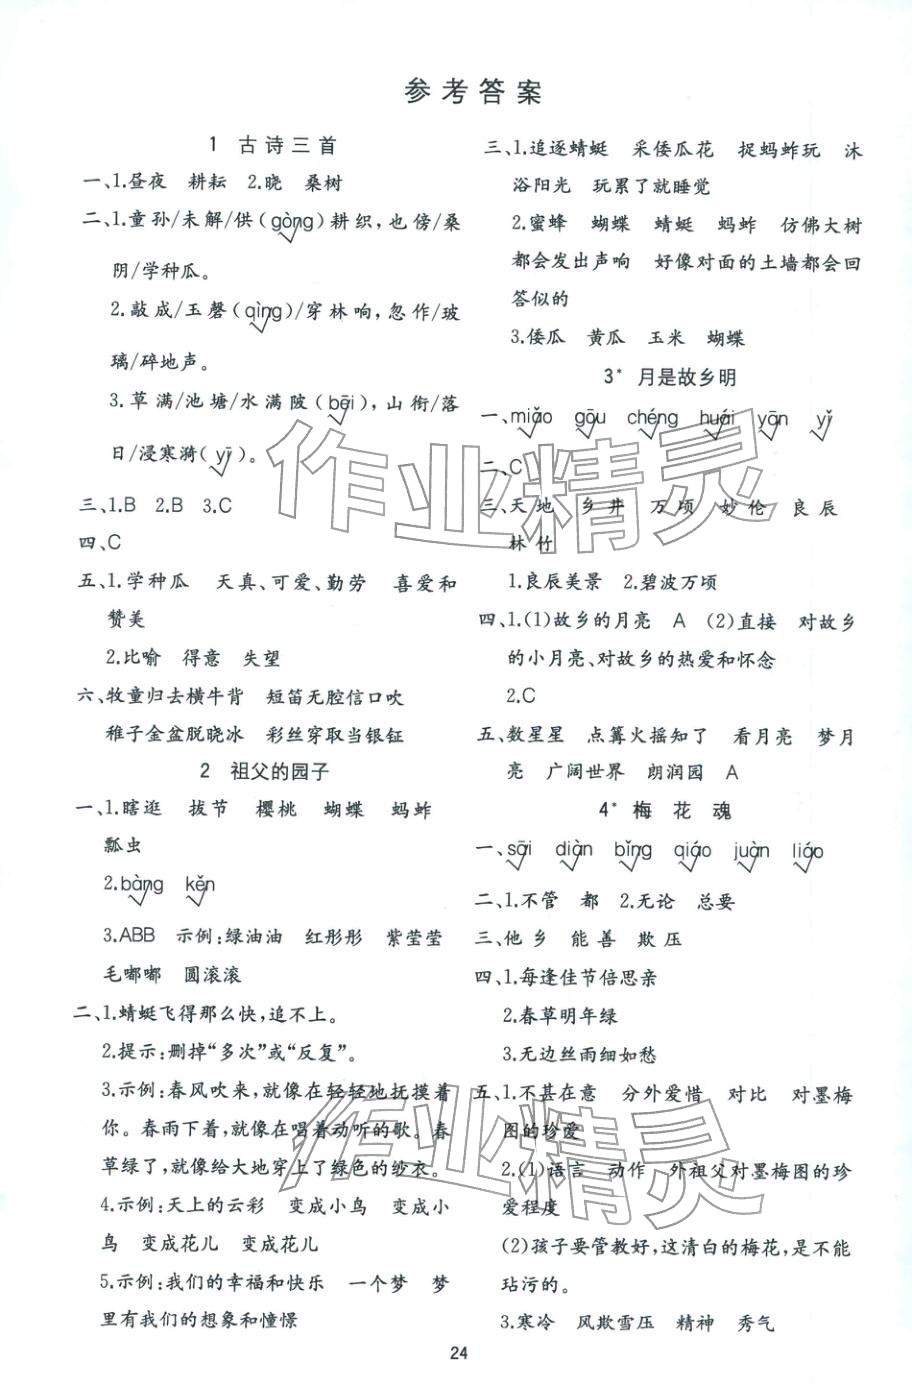 参考答案
1 古诗三首
一、1.昼夜 耕耘 2.晓 桑树
二、1.童孙/未解/供(gòng)耕织,也傍/桑
阴/学种瓜。
2.敲成/玉磬(qìng)/穿林响,忽作/玻
璃/碎地声。
3.草满/池塘/水满陂(bēi),山衔/落
日/浸寒漪(yī)。
三、1.B 2.B 3.C
四、C
五、1.学种瓜 天真、可爱、勤劳 喜爱和
赞美
2.比喻 得意 失望
六、牧童归去横牛背 短笛无腔信口吹
稚子金盆脱晓冰 彩丝穿取当银钲
2 祖父的园子
一、1.瞎逛 拔节 樱桃 蝴蝶 蚂蚱
瓢虫
2.bàng kěn
3.ABB 示例:绿油油 红彤彤 紫莹莹
毛嘟嘟 圆滚滚
二、1.蜻蜓飞得那么快,追不上。
2.提示:删掉“多次”或“反复”。
3.示例:春风吹来,就像在轻轻地抚摸着
你。春雨下着,就像在唱着动听的歌。春
草绿了,就像给大地穿上了绿色的纱衣。
4.示例:天上的云彩 变成小鸟 变成小
鸟 变成花儿 变成花儿
5.示例:我们的幸福和快乐 一个梦 梦
里有我们的想象和憧憬
三、1.追逐蜻蜓 采倭瓜花 捉蚂蚱玩 沐
浴阳光 玩累了就睡觉
2.蜜蜂 蝴蝶 蜻蜓 蚂蚱 仿佛大树
都会发出声响 好像对面的土墙都会回
答似的
3.倭瓜 黄瓜 玉米 蝴蝶
3* 月是故乡明
一、miǎo gōu chéng huái yān yǐ
二、C
三、天地 乡井 万顷 妙伦 良辰
林竹
1.良辰美景 2.碧波万顷
四、1.(1)故乡的月亮 A (2)直接 对故乡
的小月亮、对故乡的热爱和怀念
2.C
五、数星星 点篝火摇知了 看月亮 梦月
亮 广阔世界 朗润园 A
4* 梅花魂
一、sāi diàn bǐng qiáo juàn liáo
二、1.不管 都 2.无论 总要
三、他乡 能善 欺压
四、1.每逢佳节倍思亲
2.春草明年绿
3.无边丝雨细如愁
五、1.不甚在意 分外爱惜 对比 对墨梅
图的珍爱
2.(1)语言 动作 外祖父对墨梅图的珍
爱程度
(2)孩子要管教好,这清白的梅花,是不能
玷污的。
3.寒冷 风欺雪压 精神 秀气
作业精灵
作业精灵
24